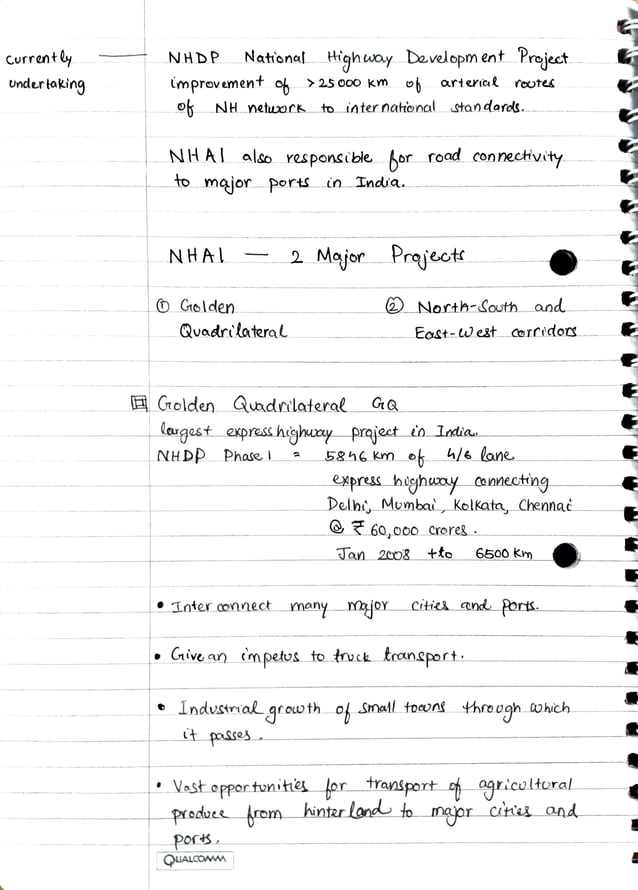 currently undertaking
NHDP National Highway Development Project
improvement of >25000 km of arterial routes
of NH network to international standards.
NHAI also responsible for road connectivity
to major ports in India.
NHAI — 2 Major Projects
① Golden Quadrilateral
② North-South and East-West corridors
Golden Quadrilateral GQ
largest express highway project in India.
NHDP Phase I = 5846 km of 4/6 lane
express highway connecting
Delhi, Mumbai, Kolkata, Chennai
@ ₹ 60,000 crores.
Jan 2008 +to 6500 km
• Inter connect many major cities and ports.
• Give an impetus to truck transport.
• Industrial growth of small towns through which
it passes.
• Vast opportunities for transport of agricultural
produce from hinterland to major cities and
ports.
QUALCOMM